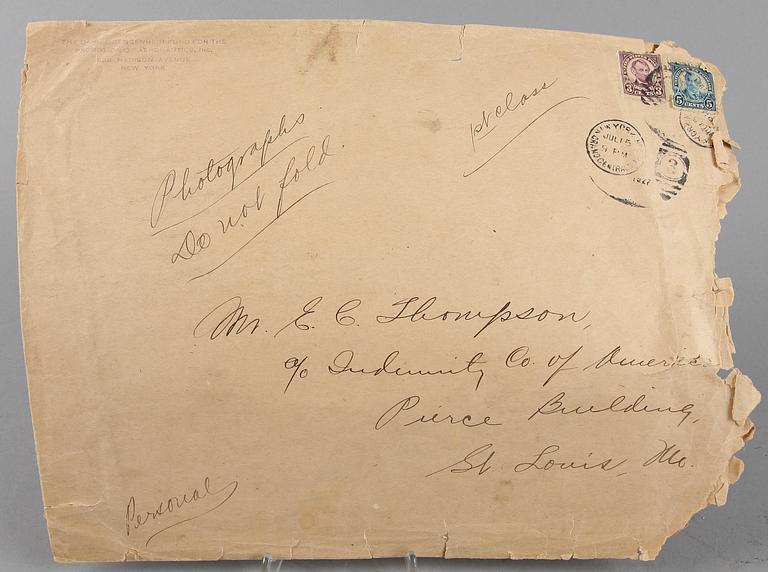 THE DANIEL GUGGENHEIM FUND FOR THE
PROMOTION OF AERONAUTICS, INC.
598 MADISON AVENUE
NEW YORK
1st class
3 CENTS 3
5 CENTS 5
NEW YORK, N.Y.
JUL 15
5 PM
GRAND CENTRAL
1927
Photographs
Do not fold.
Mr. E. C. Thompson,
c/o Indemnity Co. of America
Pierce Building,
St. Louis, Mo.
Personal